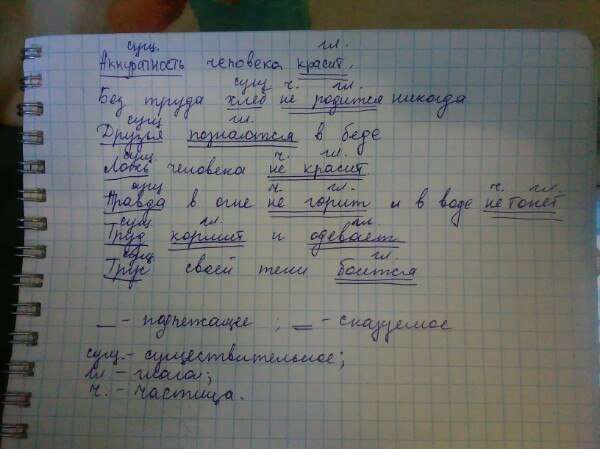 сущ. гл.
Аккуратность человека красит.
сущ ч. гл.
Без труда хлеб не родится никогда
сущ гл.
Друзья познаются в беде
сущ. ч. гл.
Ложь человека не красит
сущ ч. гл. ч. гл.
Правда в огне не горит и в воде не тонет
сущ гл. гл.
Труд кормит и одевает
сущ гл.
Трус своей тени боится
— - подлежащее ; = - сказуемое
сущ. - существительное;
гл - глагол;
ч. - частица.